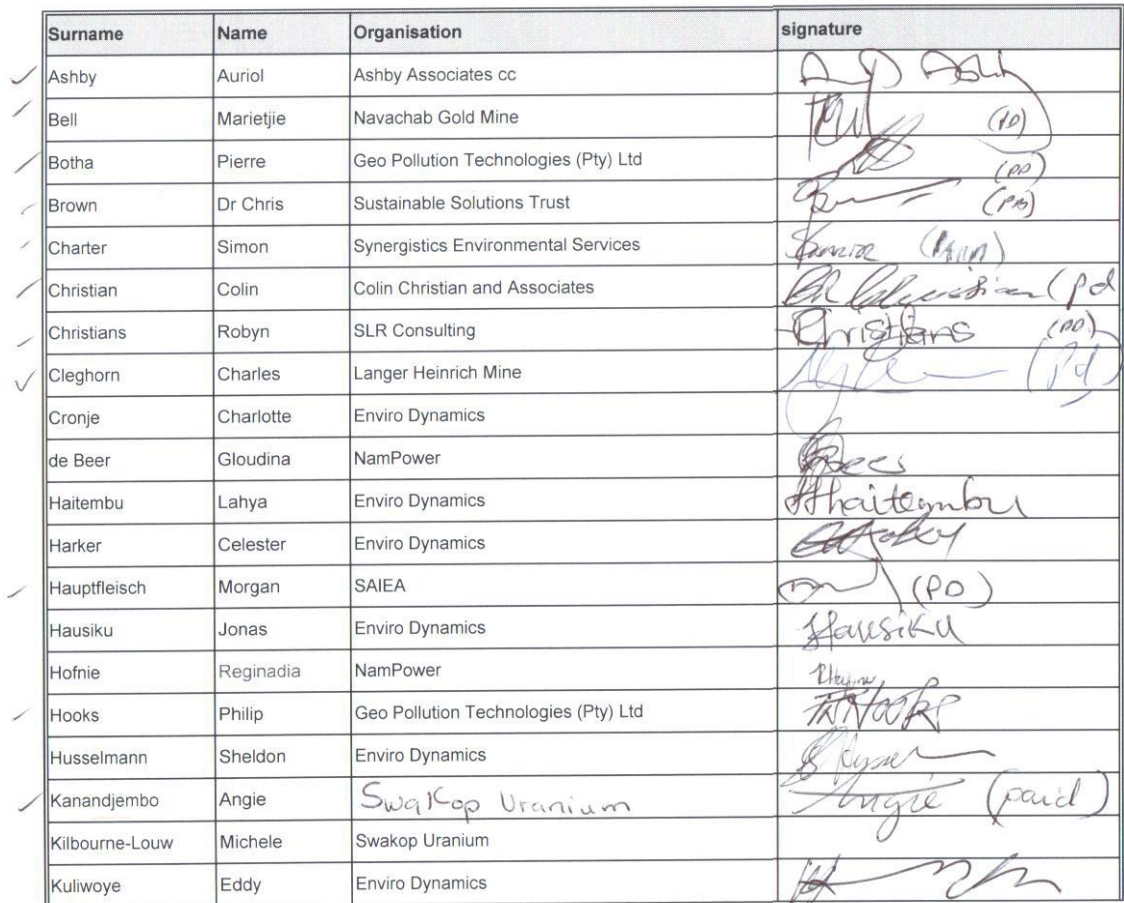 Surname Name Organisation signature
Ashby Auriol Ashby Associates cc
Bell Marietjie Navachab Gold Mine (PD)
Botha Pierre Geo Pollution Technologies (Pty) Ltd (PD)
Brown Dr Chris Sustainable Solutions Trust (PD)
Charter Simon Synergistics Environmental Services
Christian Colin Colin Christian and Associates (pd
Christians Robyn SLR Consulting Christians (PD)
Cleghorn Charles Langer Heinrich Mine (Pd)
Cronje Charlotte Enviro Dynamics
de Beer Gloudina NamPower
Haitembu Lahya Enviro Dynamics Hhaitembu
Harker Celester Enviro Dynamics
Hauptfleisch Morgan SAIEA (PD)
Hausiku Jonas Enviro Dynamics Hausiku
Hofnie Reginadia NamPower
Hooks Philip Geo Pollution Technologies (Pty) Ltd
Husselmann Sheldon Enviro Dynamics
Kanandjembo Angie Swakop Uranium Angie (paid)
Kilbourne-Louw Michele Swakop Uranium
Kuliwoye Eddy Enviro Dynamics